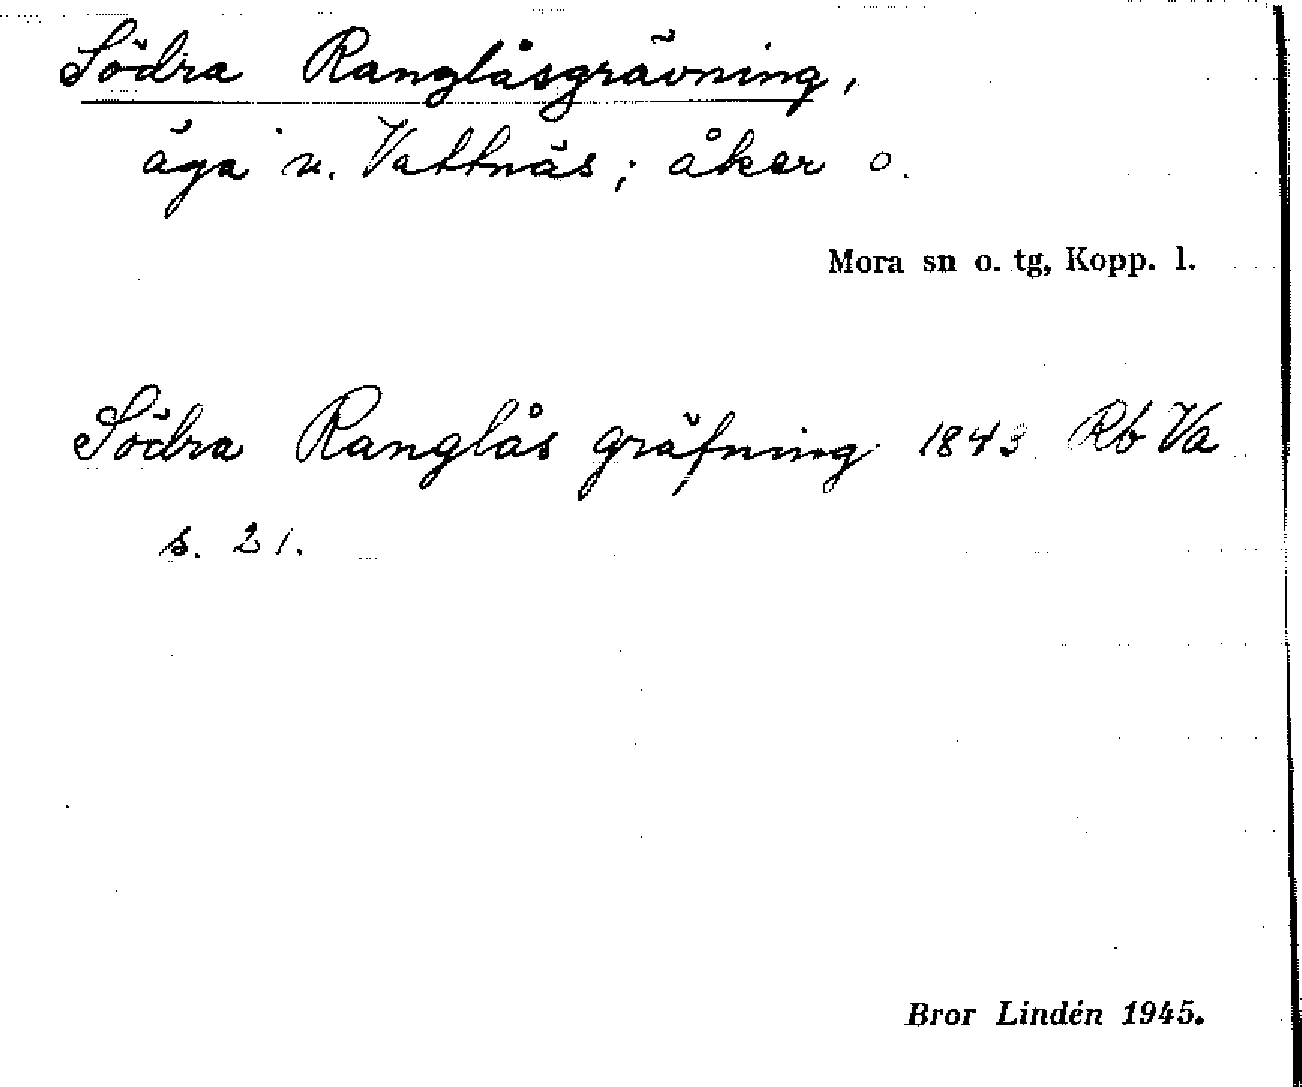 Södra Ranglåsgrävning,
äga n. Vattnäs; åker o.
Mora sn o. tg, Kopp. l.
Södra Ranglås gräfning 1843 Rb Va
s. 21.
Bror Lindén 1945.